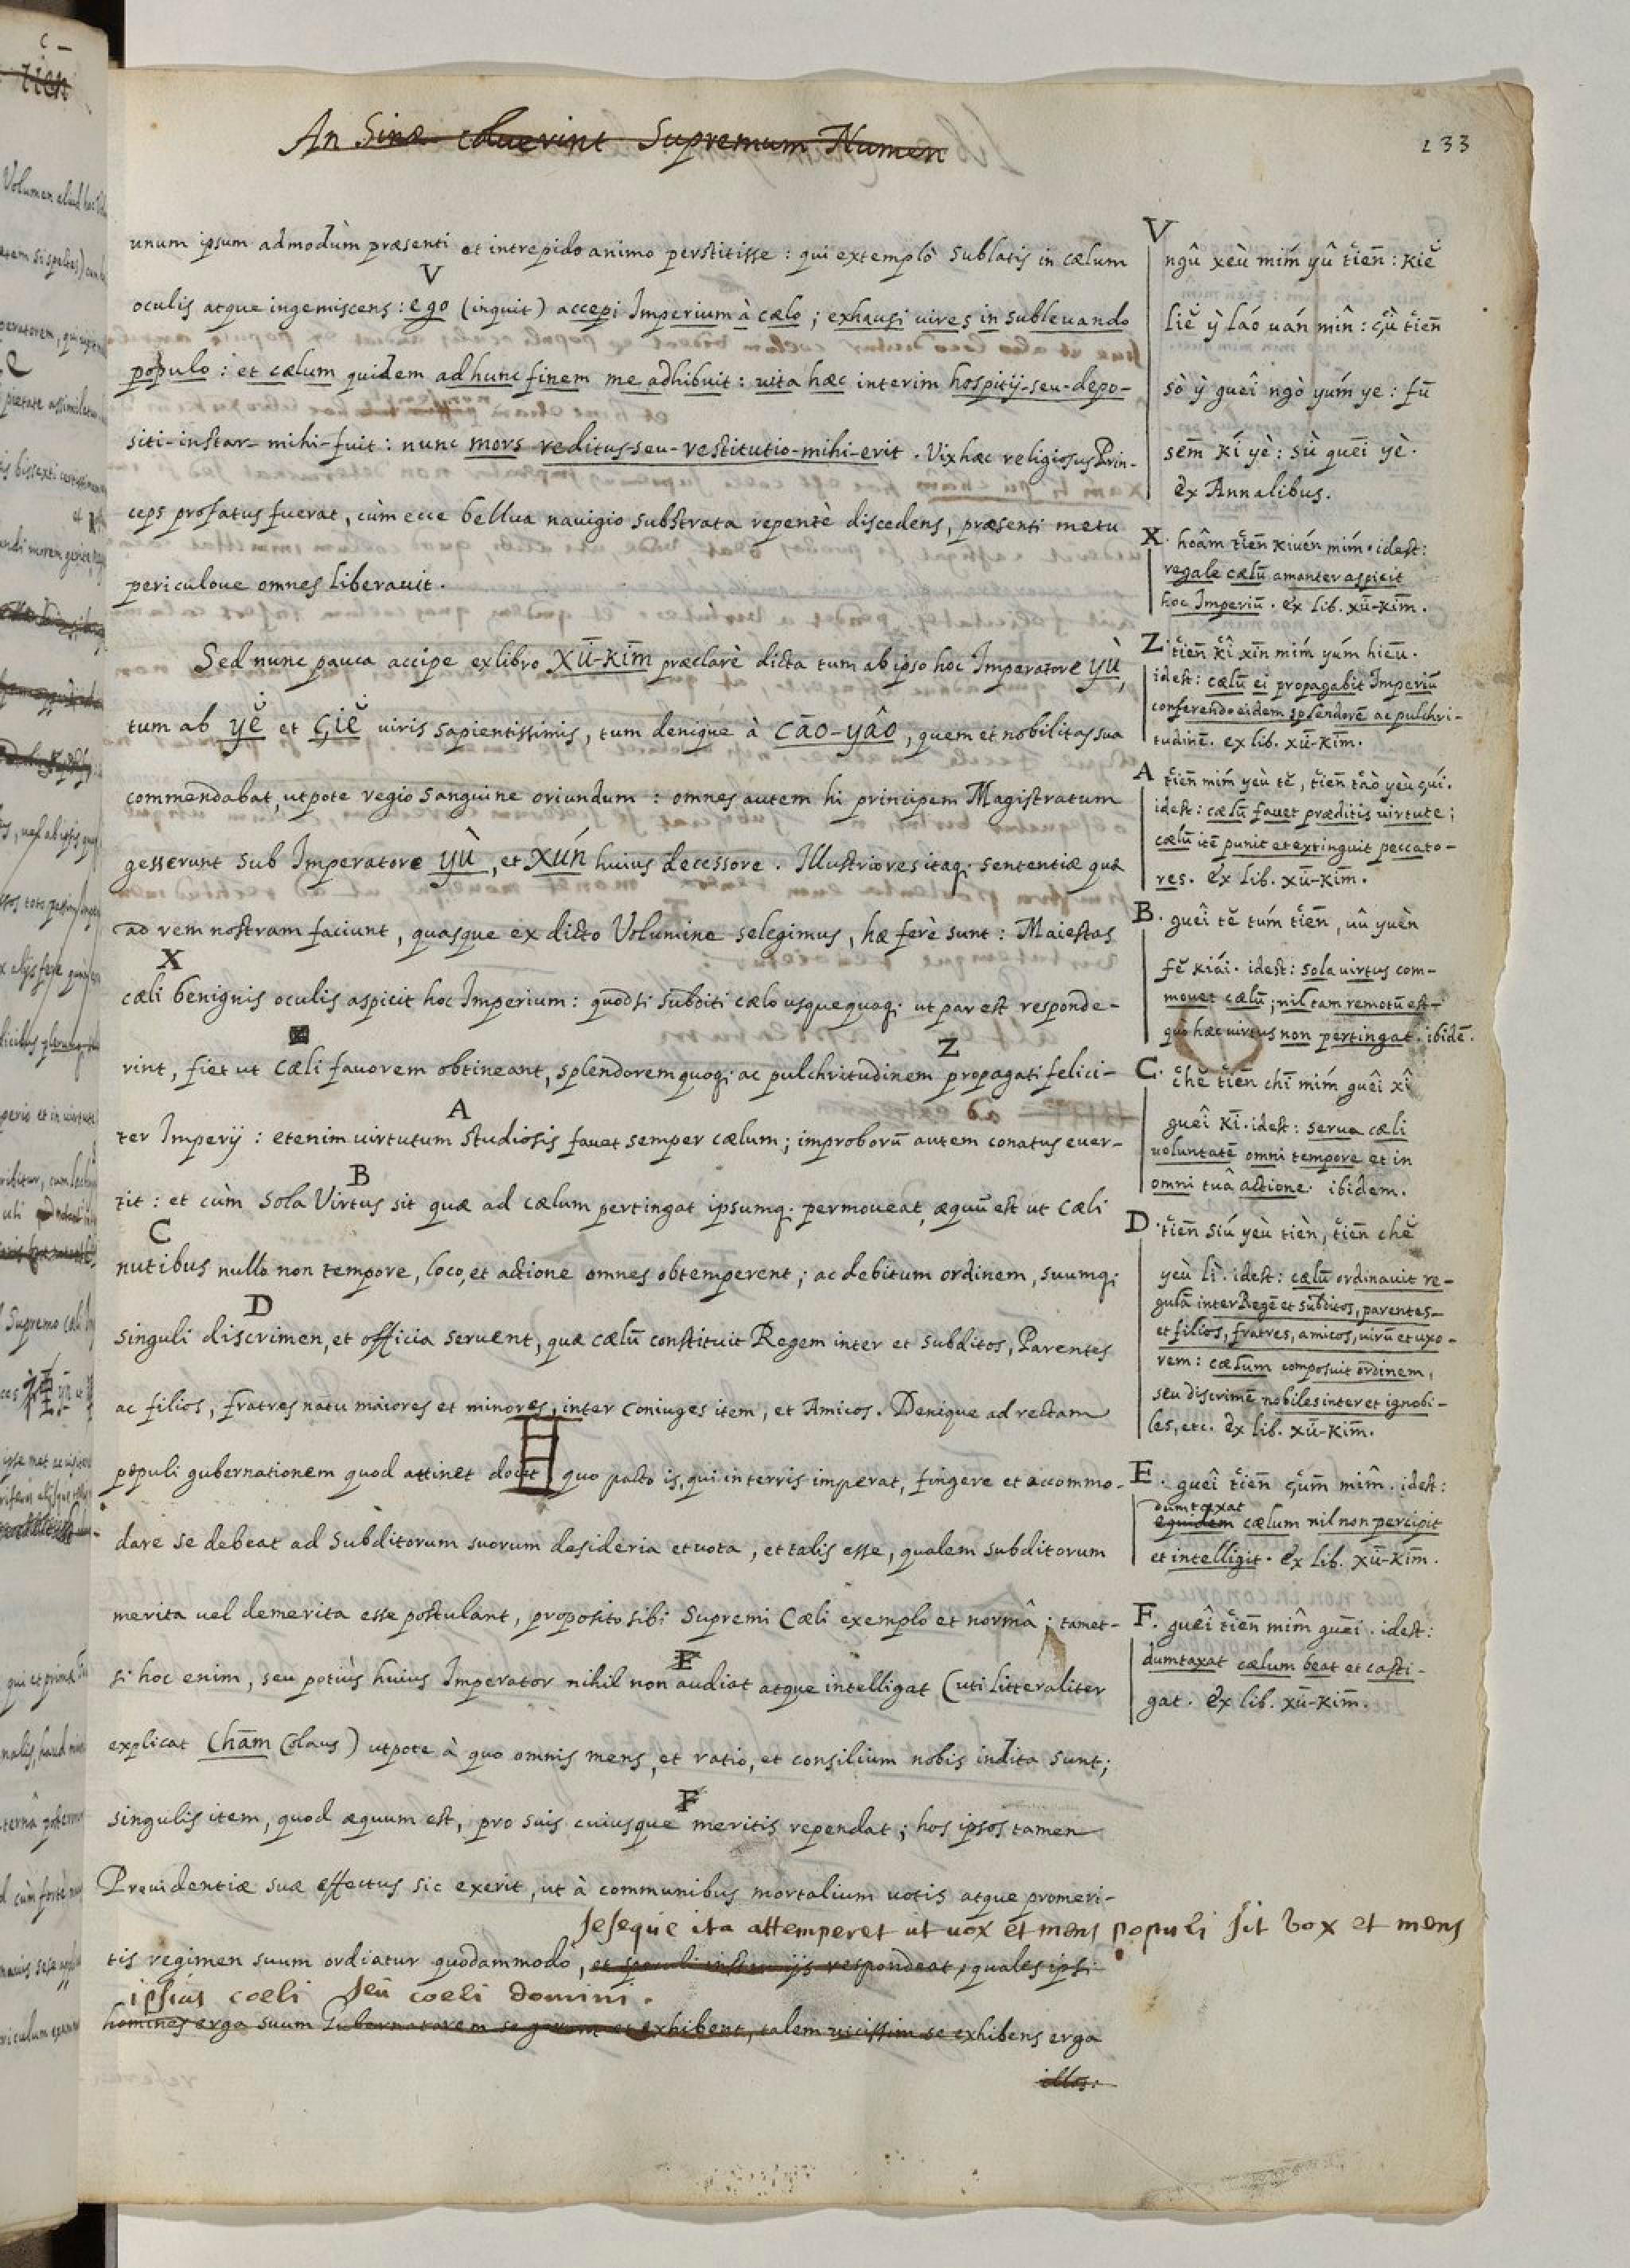 An Sinæ coluerint Supremum Numen
133
unum ipsum admodùm præsenti et intrepido animo perstitisse : qui extemplò sublatis in cælum
V
oculis atque ingemiscens : ego (inquit) accepi Imperium à cælo ; exhausi uires in subleuando
populo : et cælum quidem ad hunc finem me adhibuit : uita hæc interim hospitij-seu-depo-
siti-instar mihi-fuit : nunc mors reditus-seu-restitutio-mihi-erit . Vix hæc religiosus Prin-
ceps profatus fuerat, cùm ecce bellua nauigio substrata repentè discedens, præsenti metu
periculoue omnes liberauit .
Sed nunc pauca accipe ex libro XŪ-KĪM præclarè dicta tum ab ipso hoc Imperatore YÙ,
tum ab YĔ et ÇIĔ uiris sapientissimis, tum denique à CĀO-YÂO, quem et nobilitas sua
commendabat, utpote regio sanguine oriundum : omnes autem hi principem Magistratum
gesserunt sub Imperatore YÙ, et XÚN huius decessore . Illustriores itaq; sententiæ quæ
ad rem nostram faciunt, quasque ex dicto Volumine selegimus, hæ ferè sunt : Maiestas
X
cæli benignis oculis aspicit hoc Imperium : quodsi subditi cælo usquequaq; ut par est responde-
Z
rint, fiet ut Cæli fauorem obtineant, splendorem quoq; ac pulchritudinem propagati felici-
A
ter Imperij : etenim uirtutum studiosis fauet semper cælum ; improborū autem conatus euer-
B
tit : et cùm sola Virtus sit quæ ad cælum pertingat ipsumq; permoueat, æquū est ut Cæli
C
nutibus nullo non tempore, loco, et actione omnes obtemperent ; ac debitum ordinem, suumq;
D
singuli discrimen, et officia seruent, quæ cælū constituit Regem inter et subditos, Parentes
ac filios, fratres natu maiores et minores, inter Coniuges item, et Amicos . Denique ad rectam
populi gubernationem quod attinet docet, quo pacto is, qui in terris imperat, fingere et accommo-
dare se debeat ad Subditorum suorum desideria et uota, et talis esse, qualem subditorum
merita uel demerita esse postulant, proposito sibi Supremi Cæli exemplo et normâ ; tamet-
E
si hoc enim, seu potiùs huius Imperator nihil non audiat atque intelligat (uti litteraliter
explicat Chām Colaus) utpote à quo omnis mens, et ratio, et consilium nobis indita sunt ;
F
singulis item, quod æquum est, pro suis cuiusque meritis rependat ; hos ipsos tamen
Prouidentiæ suæ effectus sic exerit, ut à communibus mortalium uotis atque promeri-
seseque ita attemperet ut uox et mens populi sit vox et mens
tis regimen suum ordiatur quodammodò, et speculi instar ijs respondeat, quales ipsi
ipsius coeli seu coeli domini .
homines erga suum Gubernatorem se gerunt et exhibent, talem uicissim se exhibens erga
illos.
V
ngû xéù mím yû tiēn : kiĕ
liĕ ỳ láo uán mîn : çù tiēn
sò ỳ gueî ngò yúm ye : fū
sēm kí yè : sù quēi yè .
Ex Annalibus .
X . hoâm tiēn kiuén mím . idest :
regale cælū amanter aspicit
hoc Imperiū . ex lib. xū-kīm .
Z . tiēn kî xīn mím yúm hiēu .
idest : cælū ei propagabit Imperiū
conferendo eidem splendorē ac pulchri-
tudinē . ex lib. xū-kīm .
A tiēn mím yeù tĕ, tiēn tào yeù çúi .
idest : cælū fauet præditis uirtute ;
cælū itē punit et extinguit peccato-
res . ex lib. xū-kīm .
B . guêi tĕ túm tiēn, uû yuèn
fĕ kiái . idest : sola uirtus com-
mouet cælū ; nil tam remotū est
quò hæc uirtus non pertingat . ibidē .
C . chĕ tiēn chī mím guêi xî
guêi kī . idest : serua cæli
uoluntatē omni tempore et in
omni tuâ actione . ibidem .
D . tiēn siú yeù tièn, tiēn chĕ
yeù lì . idest : cælū ordinauit re-
gulā inter Regē et subditos, parentes
et filios, fratres, amicos, uirū et uxo-
rem : cælum composuit ordinem,
seu discrimē nobiles inter et ignobi-
les, etc. Ex lib. xū-kīm .
E . guêi tiēn çūm mîm . idest :
dumtaxat
equidem cælum nil non percipit
et intelligit . Ex lib. xū-kīm .
F . guêi tiēn mîm guēi . idest :
dumtaxat cælum beat et casti-
gat . Ex lib. xū-kīm .